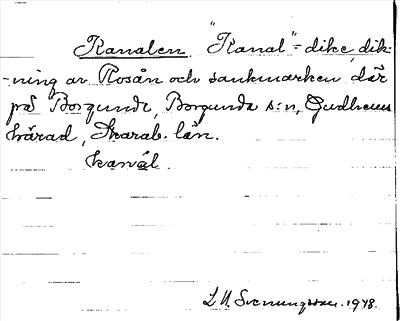 Kanalen. "Kanal" = dike, dik-
-ning av Rosån och sankmarken där
på Borgunda, Borgunda s:n, Gudhems
härad, Skarab. län.
kanal.
L M. Svenungsson. 1948.